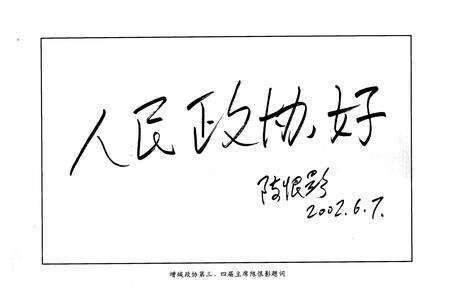 人民政协好
陈恨影
2002.6.7.
增城政协第三、四届主席陈恨影题词